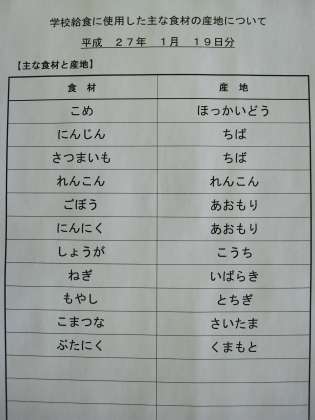 学校給食に使用した主な食材の産地について
平成　２７年　１月　１９日分
【主な食材と産地】
食　材　産　地
こめ　ほっかいどう
にんじん　ちば
さつまいも　ちば
れんこん　れんこん
ごぼう　あおもり
にんにく　あおもり
しょうが　こうち
ねぎ　いばらき
もやし　とちぎ
こまつな　さいたま
ぶたにく　くまもと